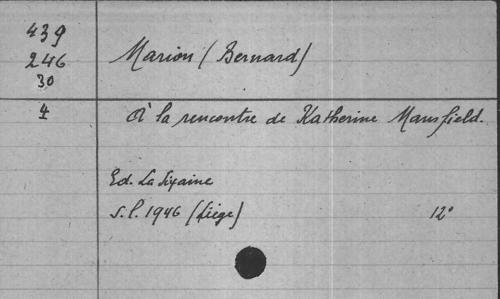 439
246
30
Marion (Bernard)
4
A la rencontre de Katherine Mansfield.
Ed. La Sixaine
s.l. 1946 (Liège) 12°